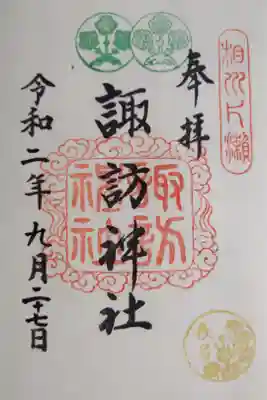 奉拝
相州片瀬
諏訪神社
諏訪
神社
令和二年九月二十七日